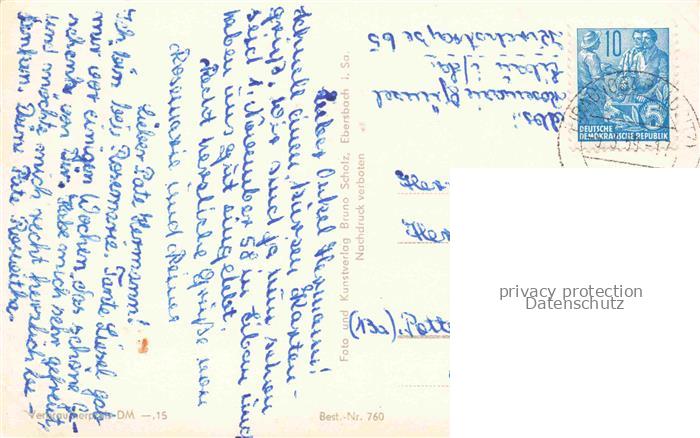 Lieber Onkel Hermann!
Schnell einen kurzen Karten-
gruß. Wir sind ja nun schon
seit 1. November 58 in Eibau und
haben uns gut eingelebt.
Recht herzliche Grüße von
Rosemarie und Reiner
Lieber Pate Hermann!
Ich bin bei Rosemarie. Tante Liesel gab
mir vor einigen Wochen das schöne Ge-
schenk von Dir. Habe mich sehr gefreut
und möchte mich recht herzlich be-
danken. Deine Pate Roswitha.
Verbraucherpreis DM —.15
Best.-Nr. 760
Foto und Kunstverlag Bruno Scholz, Ebersbach i. Sa.
Nachdruck verboten
Abs.:
Rosemarie
Eibau i/Sa.
Kirchstraße 65
10
DEUTSCHE
DEMOKRATISCHE REPUBLIK
Her
(13a)
privacy protection
Datenschutz